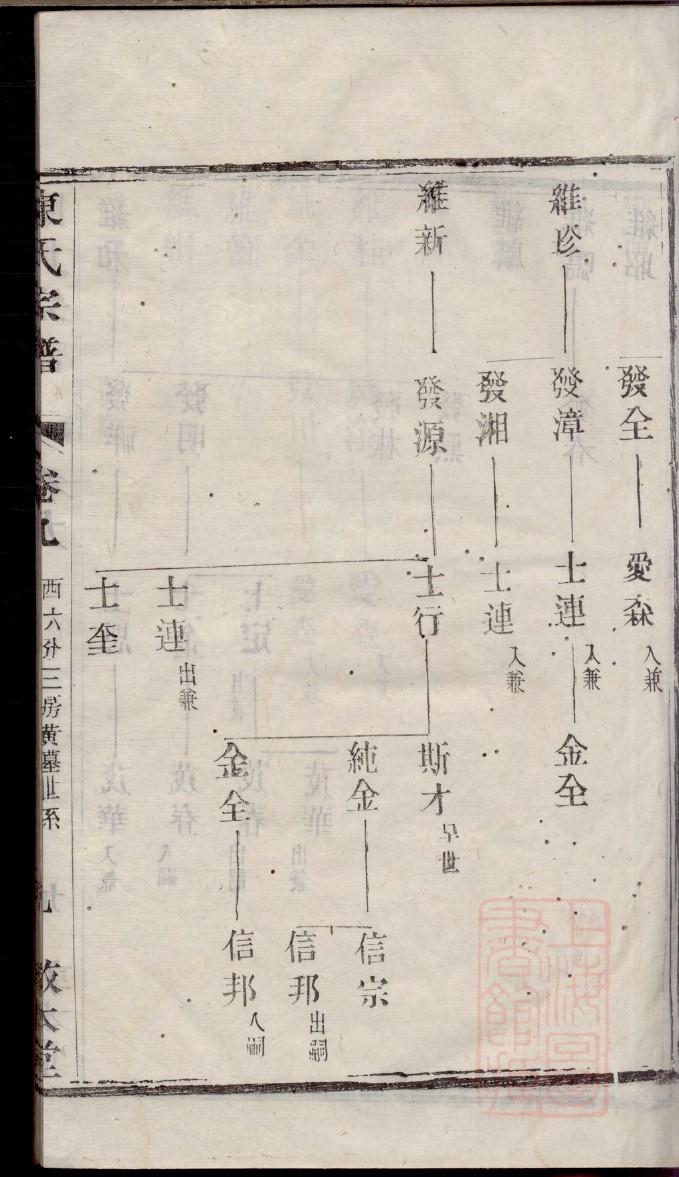 發全
愛森 入兼
維珍
發漳
士連 入兼
金全
發湘
士連 入兼
維新
發源
士行
斯才 早世
純金
信宗
信邦 出嗣
金全
信邦 入嗣
士連 出兼
士奎
陳氏宗譜
卷九
西六分三房黃墓世系
九
敘本堂
上海圖書館藏